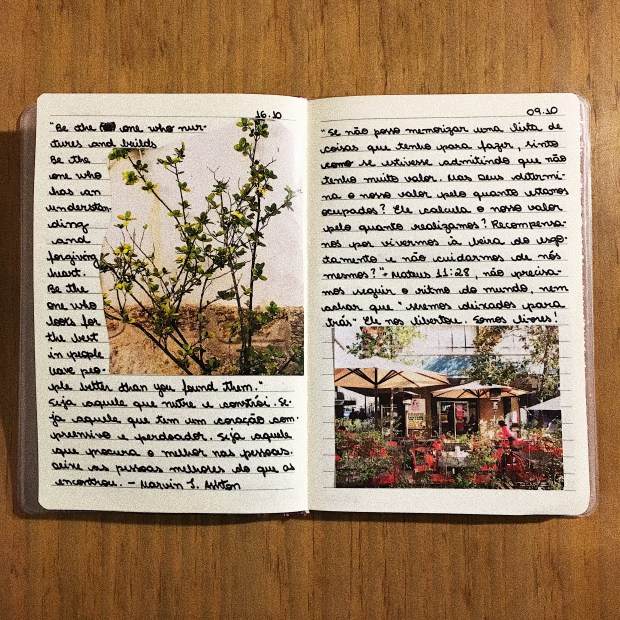 16.10
"Be the one who nur-
tures and builds
Be the
one who
has an
understan
ding
and
forgiving
heart.
Be the
one who
looks for
the best
in people
leave peo-
ple better than you found them."
Seja aquele que nutre e constrói. Se-
ja aquele que tem um coração com-
preensivo e perdoador. Seja aquele
que procura o melhor nas pessoas.
Deixe as pessoas melhores do que as
encontrou. – Marvin J. Ashton
09.10
"Se não posso memorizar uma lista de
coisas que tenho para fazer, sinto
como se estivesse admitindo que não
tenho muito valor. Mas Deus determi-
na o nosso valor pelo quanto estamos
ocupados? Ele calcula o nosso valor
pelo quanto realizamos? Recompensa-
nos por vivermos à beira do esgo-
tamento e não cuidarmos de nós
mesmos?" Mateus 11:28, não precisa-
mos seguir o ritmo do mundo, nem
achar que "seremos deixados para
trás" Ele nos libertou. Somos livres!